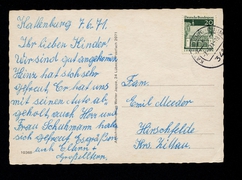 Kallenburg 7.6.71.
Ihr lieben Kinder!
Wir sind gut angekommen
Heinz hat sich sehr
gefreut. Er hat uns
mit seinem Auto ab
geholt, auch Herr und
Frau Schuhmann haben
sich gefreut
auch
Großeltern.
Deutsche Bundespost
20
Fam.
Emil Meeder
Hirschfelde
Krs. Zittau